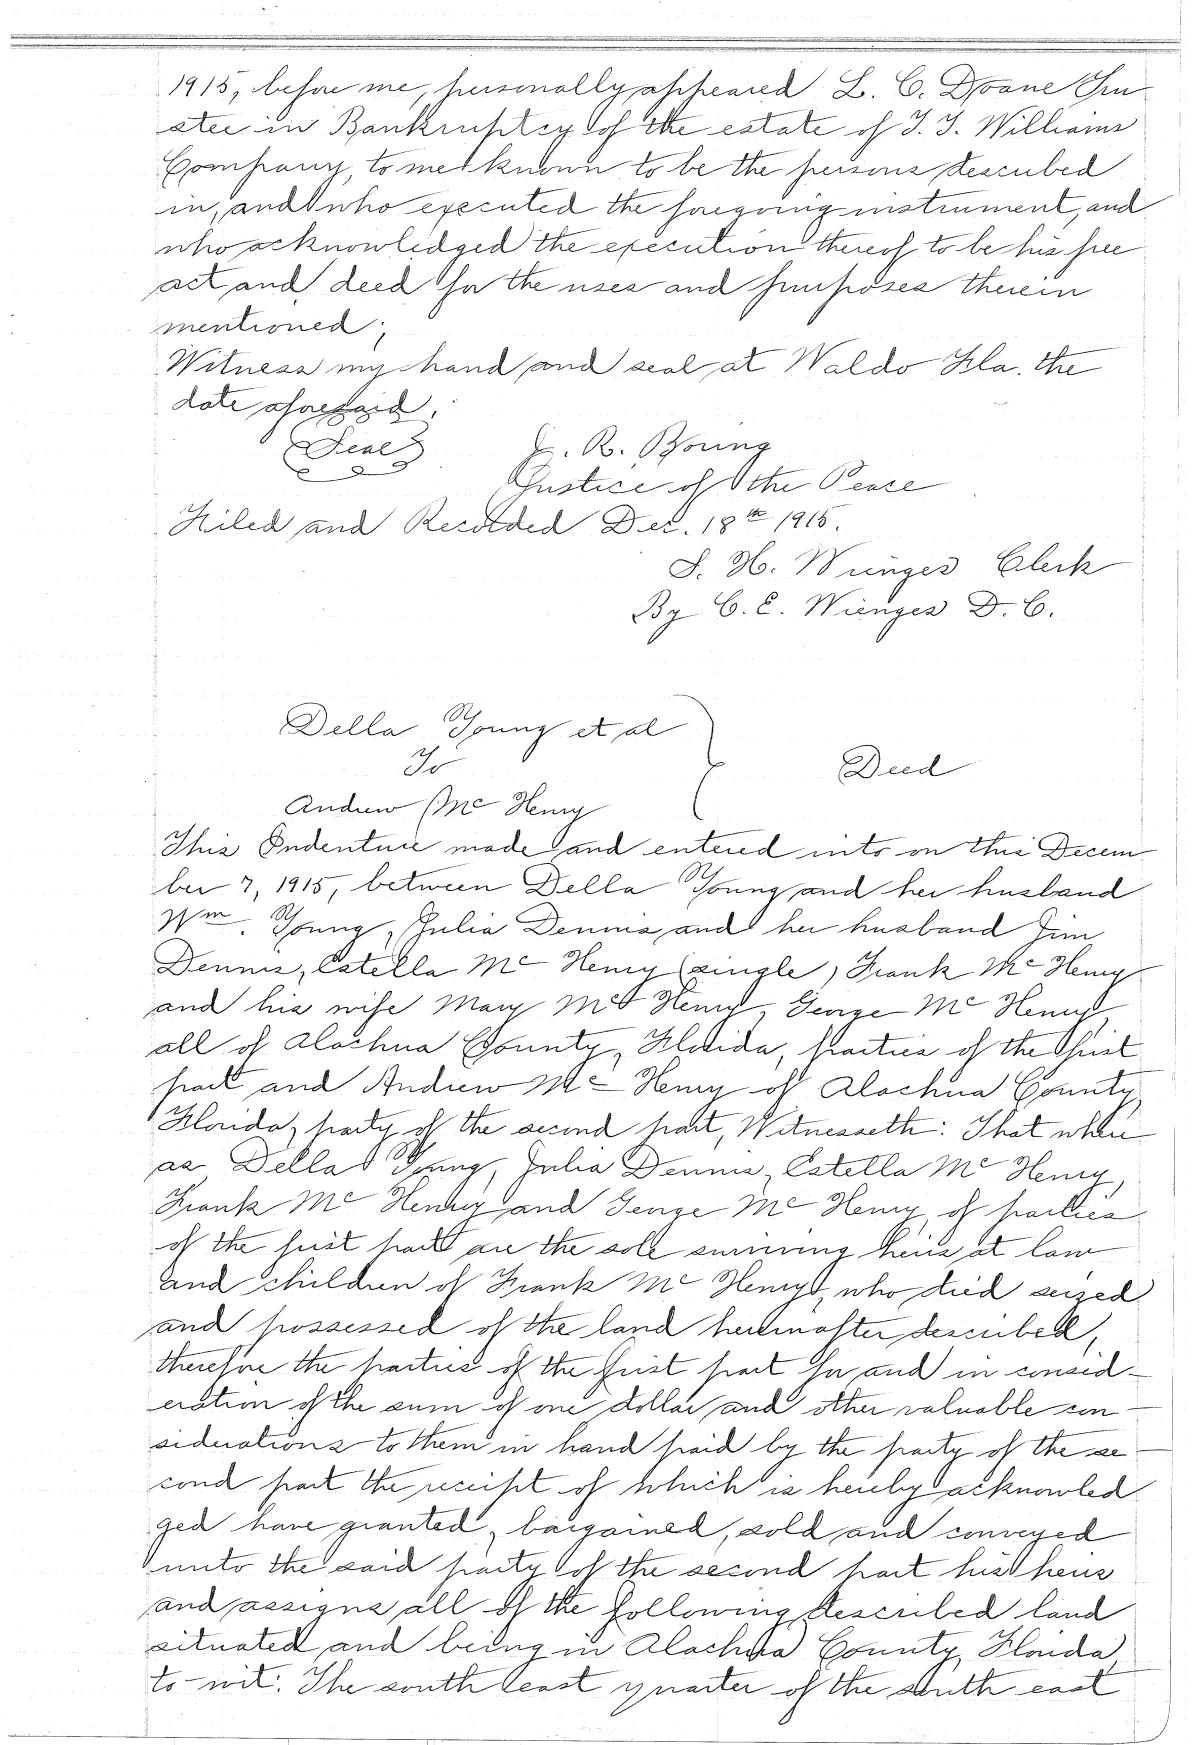 1915, before me, personally appeared L. C. Doane Tru
stee in Bankruptcy of the estate of T. T. Williams
Company, to me known to be the persons described
in, and who executed the foregoing instrument, and
who acknowledged the execution thereof to be his free
act and deed for the uses and purposes therein
mentioned;
Witness my hand and seal at Waldo Fla. the
date aforesaid.
(Seal) R. Boring
Justice of the Peace
Filed and Recorded Dec. 18th 1915.
S. H. Wienges Clerk
By C. E. Wienges D. C.
Della Young et al
To
Deed
Andrew Mc Henry
This Indenture made and entered into on this Decem
ber 7, 1915, between Della Young and her husband
Wm. Young, Julia Dennis and her husband Jim
Dennis, Estella Mc Henry (single) Frank Mc Henry
and his wife Mary Mc Henry, George Mc Henry,
all of Alachua County, Florida, parties of the first
part and Andrew Mc Henry of Alachua County,
Florida, party of the second part, Witnesseth: That where
as Della Young, Julia Dennis, Estella Mc Henry,
Frank Mc Henry and George Mc Henry, of parties
of the first part are the sole surviving heirs at law
and children of Frank Mc Henry, who died seized
and possessed of the land hereinafter described,
therefore the parties of the first part for and in consid-
eration of the sum of one dollar and other valuable con-
siderations to them in hand paid by the party of the se-
cond part the receipt of which is hereby acknowled
ged have granted, bargained, sold and conveyed
unto the said party of the second part his heirs
and assigns all of the following described land
situated and being in Alachua County, Florida,
to-wit: The south east quarter of the south east